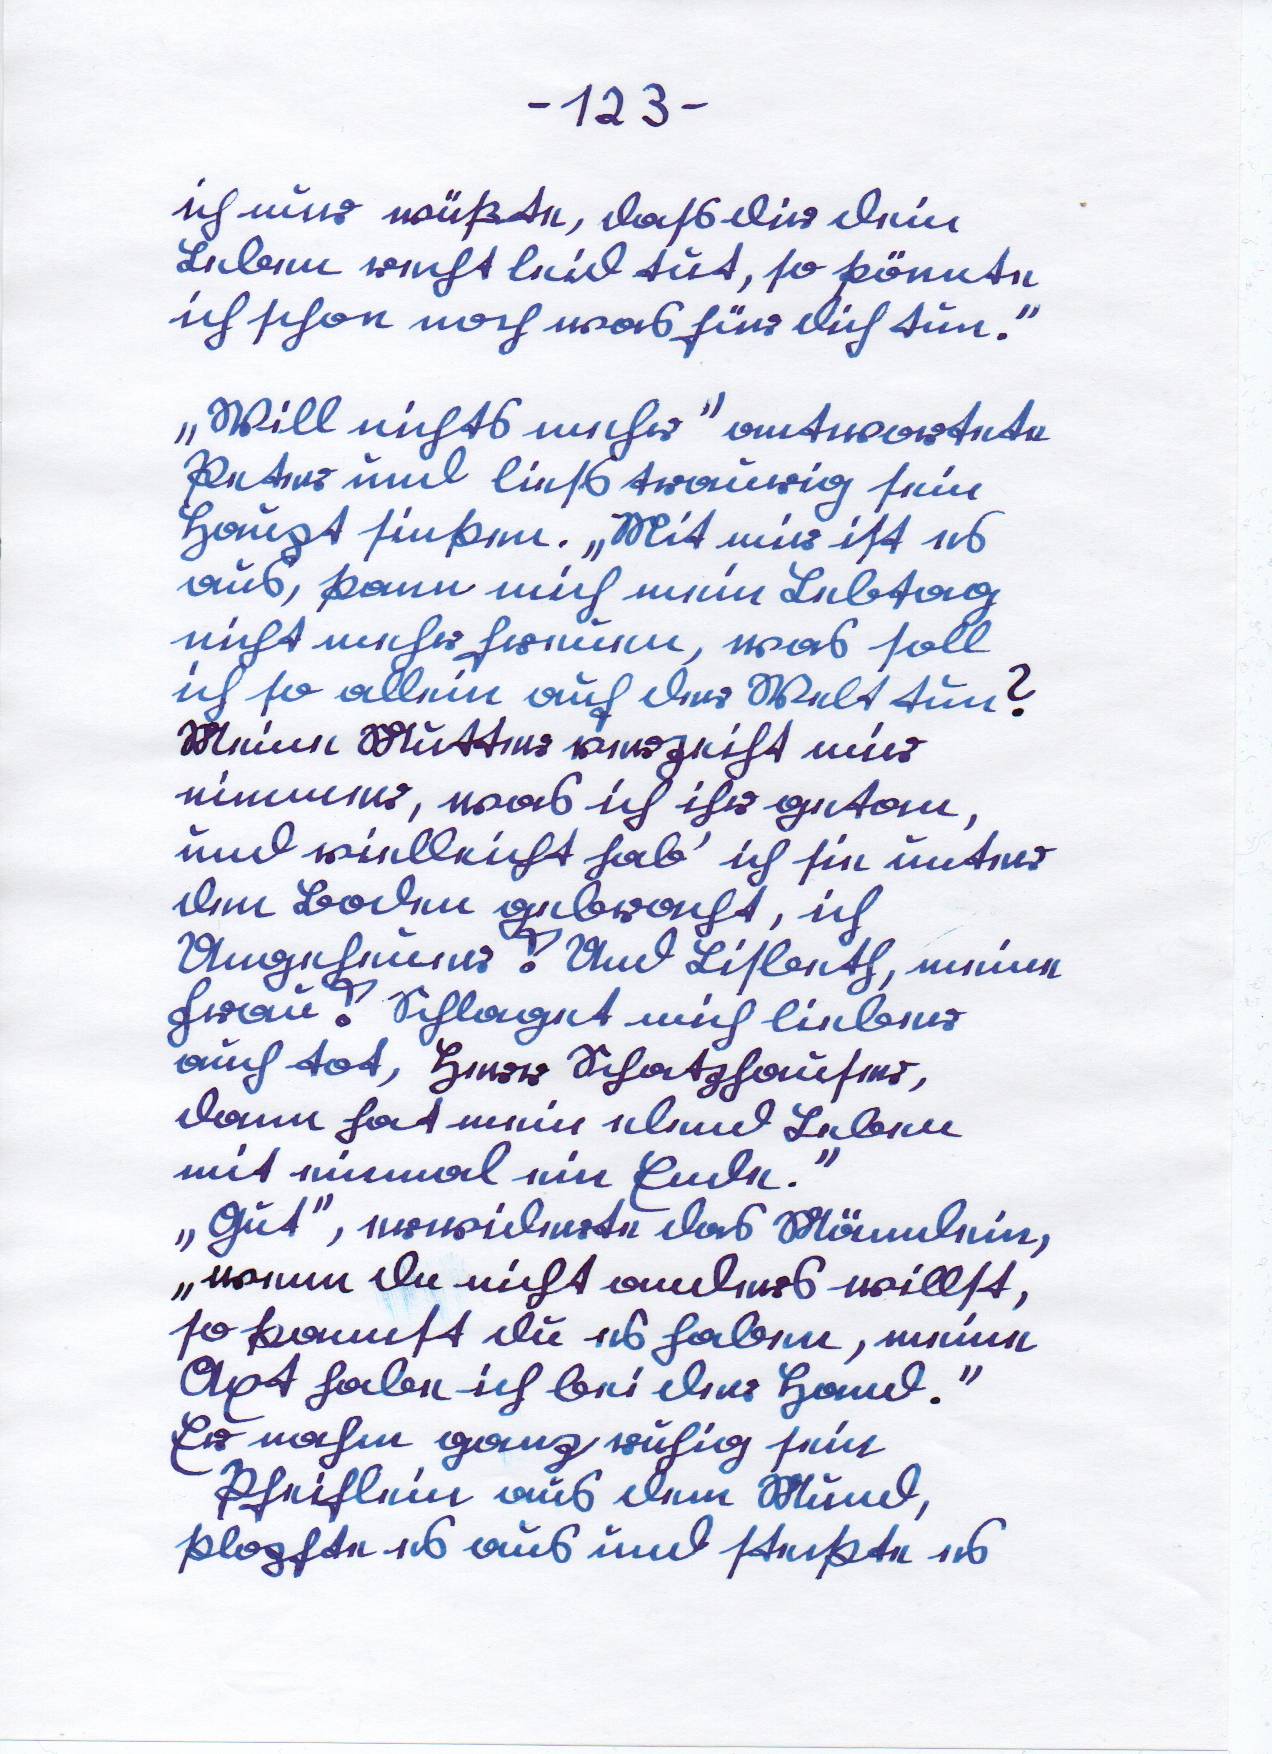 -123-
ich nur wüßte, daß dir dein
Leben recht leid tut, so könnte
ich schon noch was für dich tun."
„Will nichts mehr" antwortete
Peter und ließ traurig sein
Haupt sinken. „Mit mir ist es
aus, kann mich mein Lebtag
nicht mehr freuen, was soll
ich so allein auf der Welt tun?
Meine Mutter verzeiht mir
nimmer, was ich ihr getan,
und vielleicht hab' ich sie unter
den Boden gebracht, ich
Ungeheuer! Und Lisbeth, meine
Frau! Schlaget mich lieber
auch tot, Herr Schatzhauser,
dann hat mein elend Leben
mit einmal ein Ende."
„Gut", erwiderte das Männlein,
„wenn du nicht anders willst,
so kannst du es haben, meine
Axt habe ich bei der Hand."
Er nahm ganz ruhig sein
Pfeiflein aus dem Mund,
klopfte es aus und steckte es